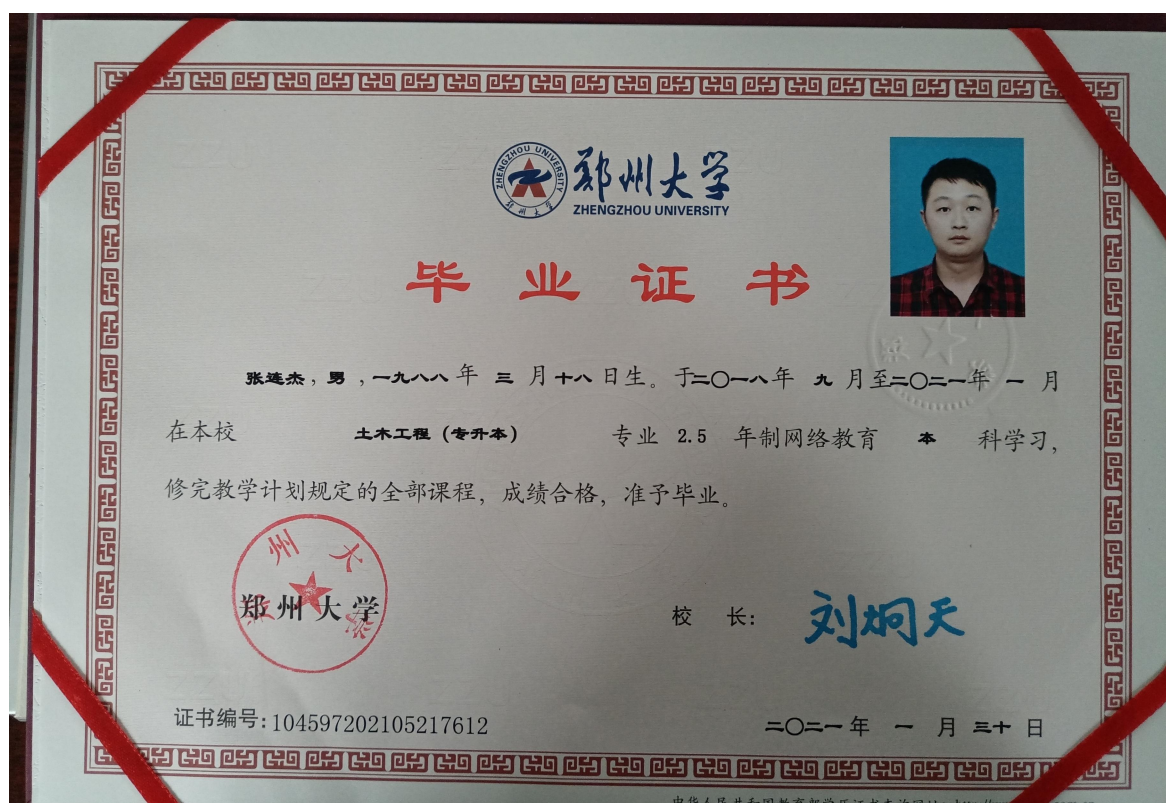 ZHENGZHOU UNIVERSITY
郑州大学
郑州大学
ZHENGZHOU UNIVERSITY
毕业证书
张连杰，男，一九八八年 三 月十八日生。于二〇一八年 九 月至二〇二一年 一 月
在本校 土木工程（专升本） 专业 2.5 年制网络教育 本 科学习，
修完教学计划规定的全部课程，成绩合格，准予毕业。
郑州大学
郑州大学
校 长：刘炯天
证书编号：104597202105217612
二〇二一年 一 月 三十 日